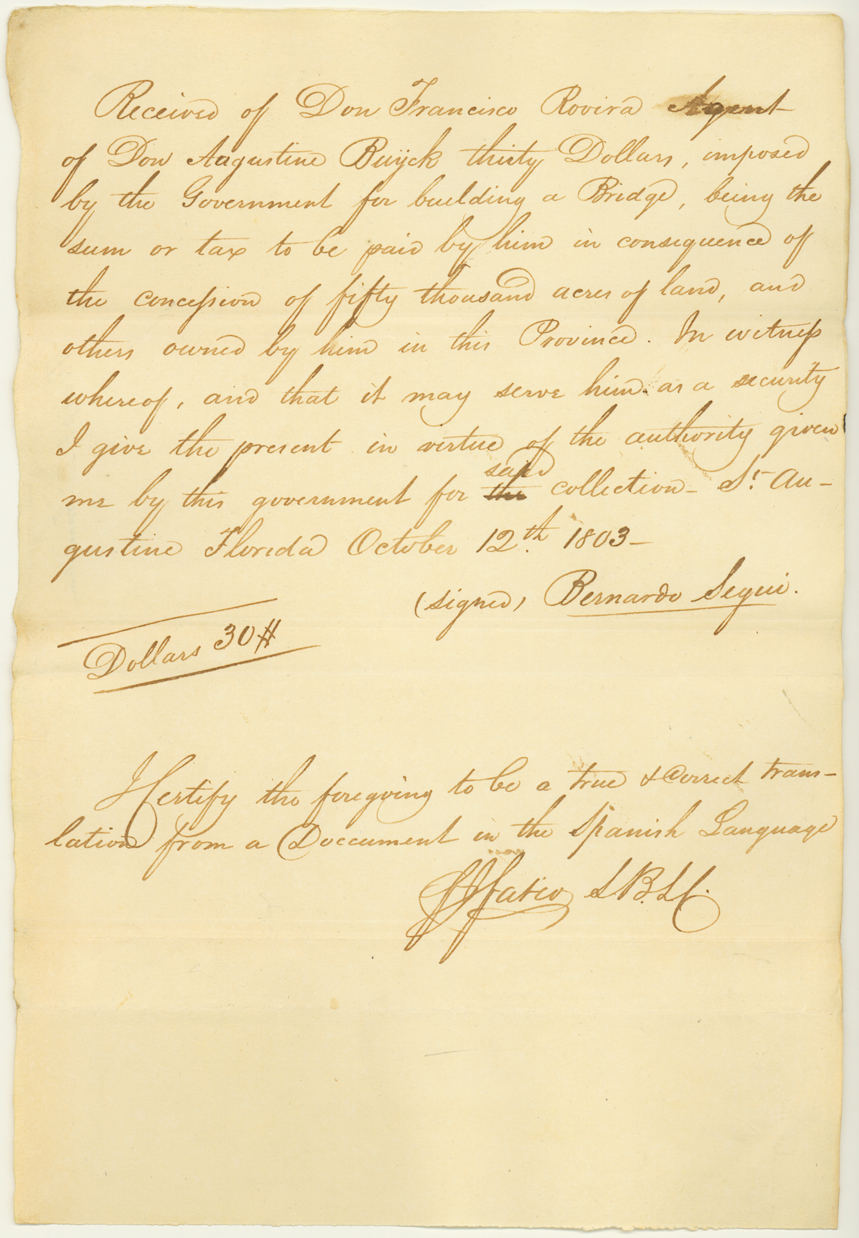 Received of Don Francisco Rovira Agent
of Don Augustine Buyck thirty Dollars, imposed
by the Government for building a Bridge, being the
sum or tax to be paid by him in consequence of
the concession of fifty thousand acres of land, and
others owned by him in this Province. In witness
whereof, and that it may serve him as a security
I give the present in virtue of the authority given
said
me by this government for the collection - St. Au-
gustine Florida October 12th. 1803 -
(signed) Bernardo Segui.
Dollars 30#
I Certify the foregoing to be a true & correct trans-
lation from a Doccument in the Spanish Language
FJFatio S.B.L.C.